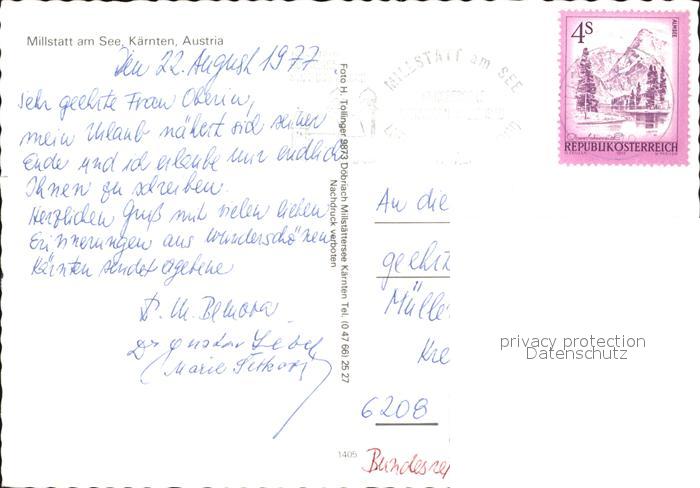 Millstatt am See, Kärnten, Austria
Den 22. August 1977
Sehr geehrte Frau Oberin,
mein Urlaub nähert sich seinem
Ende und ich erlaube mir endlich
Ihnen zu schreiben.
Herzlichen Gruß mit vielen lieben
Erinnerungen aus wunderschönen
Kärnten sendet ergebene
Dr. Gustav
(Marie
Foto H. Tollinger 9873 Döbriach Millstättersee Kärnten Tel. (0 47 66) 25 27
Nachdruck verboten
1405
MILLSTATT am SEE
4S
ALMSEE
REPUBLIK ÖSTERREICH
An die
geehrt
Mülle
Kre
6208
Bundesre
privacy protection
Datenschutz